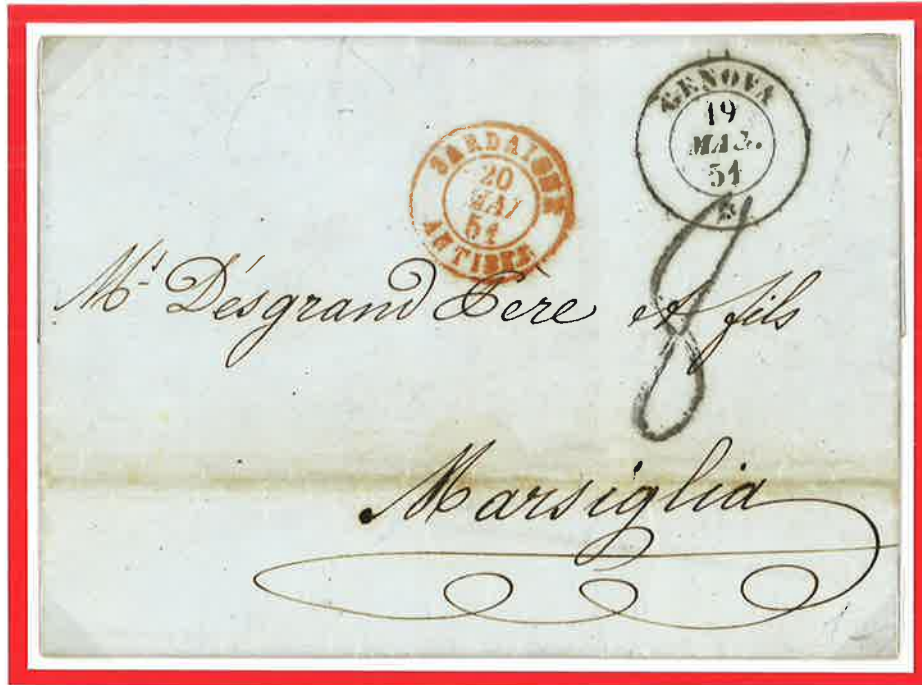 GENOVA
19
MAG.
51
SARDAIGNE
20
MAI
51
ANTIBES
8
M.r Désgrand Pere et fils
Marsiglia